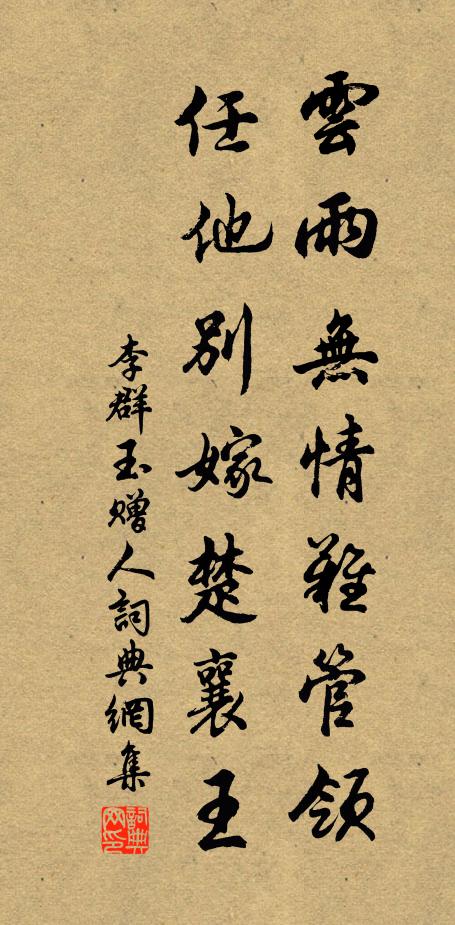 雲雨無情難管領
任他別嫁楚襄王
李群玉贈人詞典網集
詞典网印